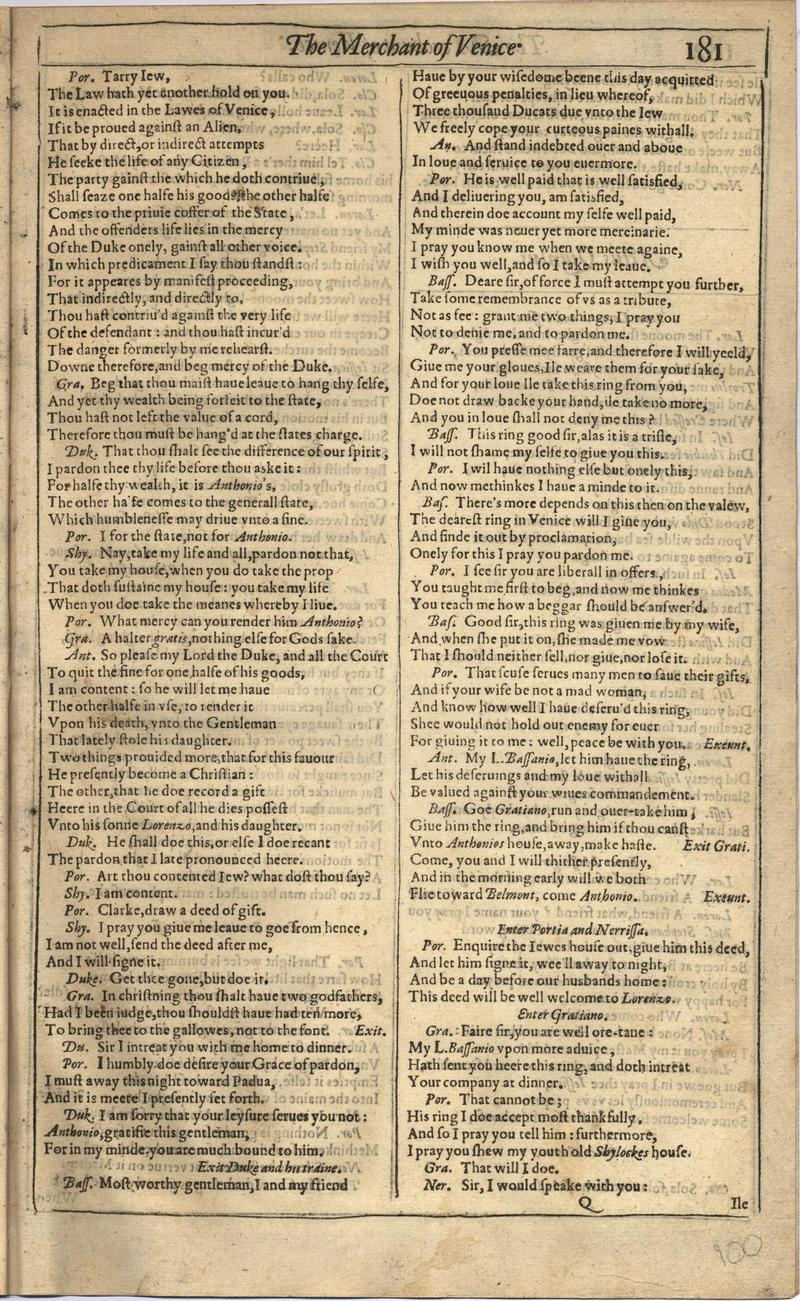 The Merchant of Venice. 181
Por. Tarry Iew,
The Law hath yet another hold on you.
It is enacted in the Lawes of Venice,
If it be proued againſt an Alien,
That by direct, or indirect attempts
He ſeeke the life of any Citizen,
The party gainſt the which he doth contriue,
Shall ſeaze one halfe his goods, the other halfe
Comes to the priuie coffer of the State,
And the offenders life lies in the mercy
Of the Duke onely, gainſt all other voice.
In which predicament I ſay thou ſtandſt:
For it appeares by manifeſt proceeding,
That indirectly, and directly to,
Thou haſt contriu'd againſt the very life
Of the defendant: and thou haſt incur'd
The danger formerly by me rehearſt.
Downe therefore, and beg mercy of the Duke.
Gra. Beg that thou maiſt haue leaue to hang thy ſelfe,
And yet thy wealth being forfeit to the ſtate,
Thou haſt not left the value of a cord,
Therefore thou muſt be hang'd at the ſtates charge.
Duk. That thou ſhalt ſee the difference of our ſpirit,
I pardon thee thy life before thou aske it:
For halfe thy wealth, it is Anthonio's,
The other halfe comes to the generall ſtate,
Which humbleneſſe may driue vnto a fine.
Por. I for the ſtate, not for Anthonio.
Shy. Nay, take my life and all, pardon not that,
You take my houſe, when you do take the prop
That doth ſuſtaine my houſe: you take my life
When you doe take the meanes whereby I liue.
Por. What mercy can you render him Anthonio?
Gra. A halter gratis, nothing elſe for Gods ſake.
Ant. So pleaſe my Lord the Duke, and all the Court
To quit the fine for one halfe of his goods,
I am content: ſo he will let me haue
The other halfe in vſe, to render it
Vpon his death, vnto the Gentleman
That lately ſtole his daughter.
Two things prouided more, that for this fauour
He preſently become a Chriſtian:
The other, that he doe record a gift
Heere in the Court of all he dies poſſeſt
Vnto his ſonne Lorenzo, and his daughter.
Duk. He ſhall doe this, or elſe I doe recant
The pardon that I late pronounced heere.
Por. Art thou contented Iew? what doſt thou ſay?
Shy. I am content.
Por. Clarke, draw a deed of gift.
Shy. I pray you giue me leaue to goe from hence,
I am not well, ſend the deed after me,
And I will ſigne it.
Duke. Get thee gone, but doe it.
Gra. In chriſtning thou ſhalt haue two godfathers,
Had I been iudge, thou ſhouldſt haue had ten more,
To bring thee to the gallowes, not to the font. Exit.
Du. Sir I intreat you with me home to dinner.
Por. I humbly doe deſire your Grace of pardon,
I muſt away this night toward Padua,
And it is meete I preſently ſet forth.
Duk. I am ſorry that your leyſure ſerues you not:
Anthonio, gratifie this gentleman,
For in my minde you are much bound to him.
Exit Duke and his traine.
Baſſ. Moſt worthy gentleman, I and my friend
Haue by your wiſedome beene this day acquitted
Of greeuous penalties, in lieu whereof,
Three thouſand Ducats due vnto the Iew
We freely cope your curteous paines withall.
An. And ſtand indebted ouer and aboue
In loue and ſeruice to you euermore.
Por. He is well paid that is well ſatisfied,
And I deliuering you, am ſatisfied,
And therein doe account my ſelfe well paid,
My minde was neuer yet more mercinarie.
I pray you know me when we meete againe,
I wiſh you well, and ſo I take my leaue.
Baſſ. Deare ſir, of force I muſt attempt you further,
Take ſome remembrance of vs as a tribute,
Not as fee: grant me two things, I pray you
Not to denie me, and to pardon me.
Por. You preſſe mee farre, and therefore I will yeeld,
Giue me your gloues, Ile weare them for your ſake,
And for your loue Ile take this ring from you,
Doe not draw backe your hand, ile take no more,
And you in loue ſhall not deny me this?
Baſſ. This ring good ſir, alas it is a trifle,
I will not ſhame my ſelfe to giue you this.
Por. I wil haue nothing elſe but onely this,
And now methinkes I haue a minde to it.
Baſ. There's more depends on this then on the valew,
The deareſt ring in Venice will I giue you,
And finde it out by proclamation,
Onely for this I pray you pardon me.
Por. I ſee ſir you are liberall in offers,
You taught me firſt to beg, and now me thinkes
You teach me how a beggar ſhould be anſwer'd.
Baſ. Good ſir, this ring was giuen me by my wife,
And when ſhe put it on, ſhe made me vow
That I ſhould neither ſell, nor giue, nor loſe it.
Por. That ſcuſe ſerues many men to ſaue their gifts,
And if your wife be not a mad woman,
And know how well I haue deſeru'd this ring,
Shee would not hold out enemy for euer
For giuing it to me: well, peace be with you. Exeunt.
Ant. My L. Baſſanio, let him haue the ring,
Let his deſeruings and my loue withall
Be valued againſt your wiues commandement.
Baſſ. Goe Gratiano, run and ouer-take him,
Giue him the ring, and bring him if thou canſt
Vnto Anthonios houſe, away, make haſte. Exit Grati.
Come, you and I will thither preſently,
And in the morning early will we both
Flie toward Belmont, come Anthonio. Exeunt.
Enter Portia and Nerriſſa.
Por. Enquire the Iewes houſe out, giue him this deed,
And let him ſigne it, wee'll away to night,
And be a day before our husbands home:
This deed will be well welcome to Lorenzo.
Enter Gratiano.
Gra. Faire ſir, you are well ore-tane:
My L. Baſſanio vpon more aduice,
Hath ſent you heere this ring, and doth intreat
Your company at dinner.
Por. That cannot be;
His ring I doe accept moſt thankfully,
And ſo I pray you tell him: furthermore,
I pray you ſhew my youth old Shylockes houſe.
Gra. That will I doe.
Ner. Sir, I would ſpeake with you:
Q Ile
900